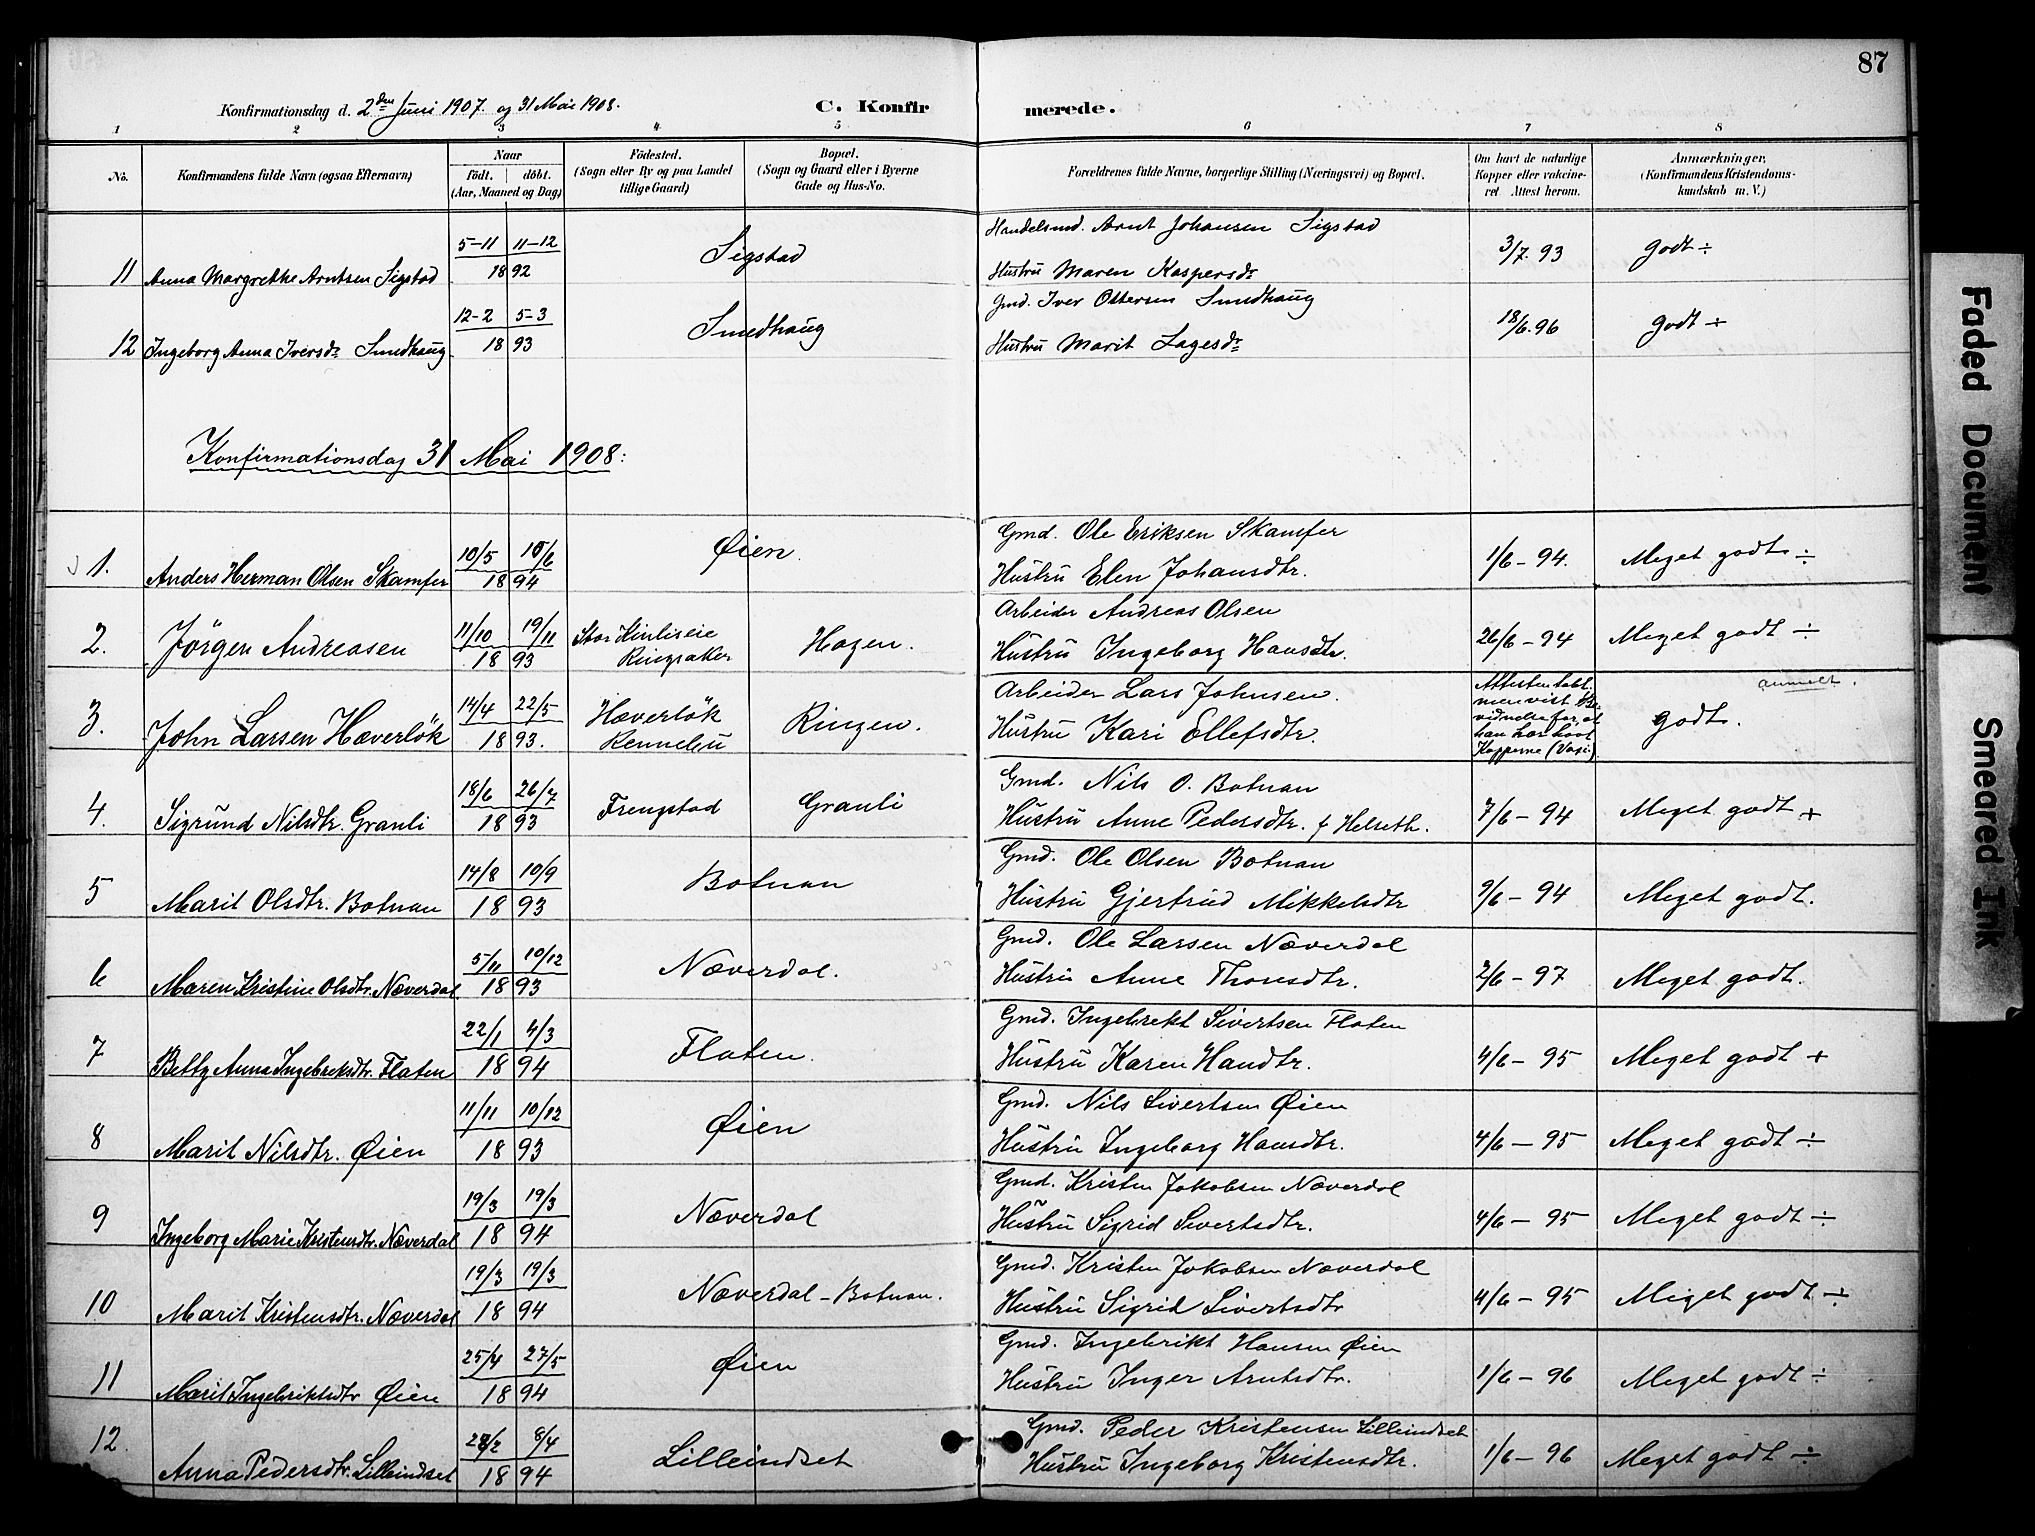 87
Konfirmationsdag d. 2den Juni 1907. og 31 Mai 1908.
C. Konfirmerede.
1 2 3 4 5 6 7 8
No.
Konfirmandens fulde Navn (ogsaa Efternavn)
Naar
födt. döbt.
(Aar, Maaned og Dag)
Födested.
(Sogn eller By og paa Landet
tillige Gaard)
Bopæl.
(Sogn og Gaard eller i Byerne
Gade og Hus-No.
Forældrenes fulde Navne, borgerlige Stilling (Næringsvei) og Bopæl.
Om havt de naturlige
Kopper eller vakcine-
ret Attest herom.
Anmærkninger,
(Konfirmandens Kristendoms-
kundskab m. V.)
11 Anna Margrethe Arntsen Sigstad 5-11 11-12 1892 Sigstad
Handelsmd. Arnt Johansen Sigstad
Hustru Maren Kaspersdr
3/7. 93 Godt ÷
12 Ingeborg Anna Iversdr Smedhaug 12-2 5-3 1893 Smedhaug
Gmd. Iver Ottersen Smedhaug
Hustru Marit Lagesdr
18/6. 96 Godt ÷
Konfirmationsdag 31 Mai 1908:
1. Anders Herman Olsen Skamfer 10/5 10/6 1894 Øien.
Gmd. Ole Eriksen Skamfer
Hustru Elen Johansdtr.
1/6 - 94. Meget godt ÷
2. Jörgen Andreasen 11/10 19/11 1893 Stor Kinliseie
Ringsaker Hagen.
Arbeider Andreas Olsen
Hustru Ingeborg Hansdtr.
26/6 - 94 Meget godt ÷
3. John Larsen Hæverlök 14/4 22/5 1893. Hæverlök
Rennebu Ringen.
Arbeider Lars Johnsen.
Hustru Kari Ellefsdtr.
Attesten tabt
men vist
vidnelse for, at
han har havt
Kopperne (Vasi.)
godt. anmelt.
4. Sigrund Nilsdtr. Granli 18/6 26/7 1893 Frengstad Granli
Gmd. Nils O. Botnan
Hustru Anne Pedersdtr. f Helseth.
7/6 - 94 Meget godt +
5 Marit Olsdtr. Botnan 14/8 10/9 1893 Botnan
Gmd. Ole Olsen Botnan
Hustru Gjertrud Mikkelsdtr
9/6 - 94 Meget godt.
6 Maren Kristine Olsdtr. Næverdal 5/11 10/12 1893 Næverdal.
Gmd. Ole Larsen Næverdal
Hustru Anne Thoresdtr.
2/6 - 97 Meget godt.
7 Betty Anna Ingebriktsdtr. Flaten 22/1 4/3 1894 Flaten.
Gmd. Ingebrikt Sivertsen Flaten
Hustru Karen Handtr.
4/6 - 95 Meget godt +
8 Marit Nilsdtr. Øien 11/11 10/12 1893 Øien
Gmd. Nils Sivertsen Øien
Hustru Ingeborg Hansdtr.
4/6 - 95 Meget godt ÷
9 Ingeborg Marie Kristensdtr. Næverdal 19/3 19/3 1894 Næverdal
Gmd. Kristen Jakobsen Næverdal
Hustru Sigrid Sivertsdtr.
4/6 - 95 Meget godt ÷
10 Marit Kristensdtr. Næverdal 19/3 19/3 1894 Næverdal - Botnan.
Gmd. Kristen Jakobsen Næverdal
Hustru Sigrid Sivertsdtr
4/6 - 95 Meget godt ÷
11 Marit Ingebriktsdtr Øien 25/4 27/5 1894 Øien
Gmd. Ingebrikt Hansen Øien
Hustru Inger Arntsdtr.
1/6 - 96 Meget godt ÷
12. Anna Pedersdtr. Lilleindset 8/4 1894 Lilleindset
Gmd. Peder Kristensen Lilleindset
Hustru Ingeborg Kristensdtr.
1/6 - 96 Meget godt ÷
Faded Document
Smeared Ink